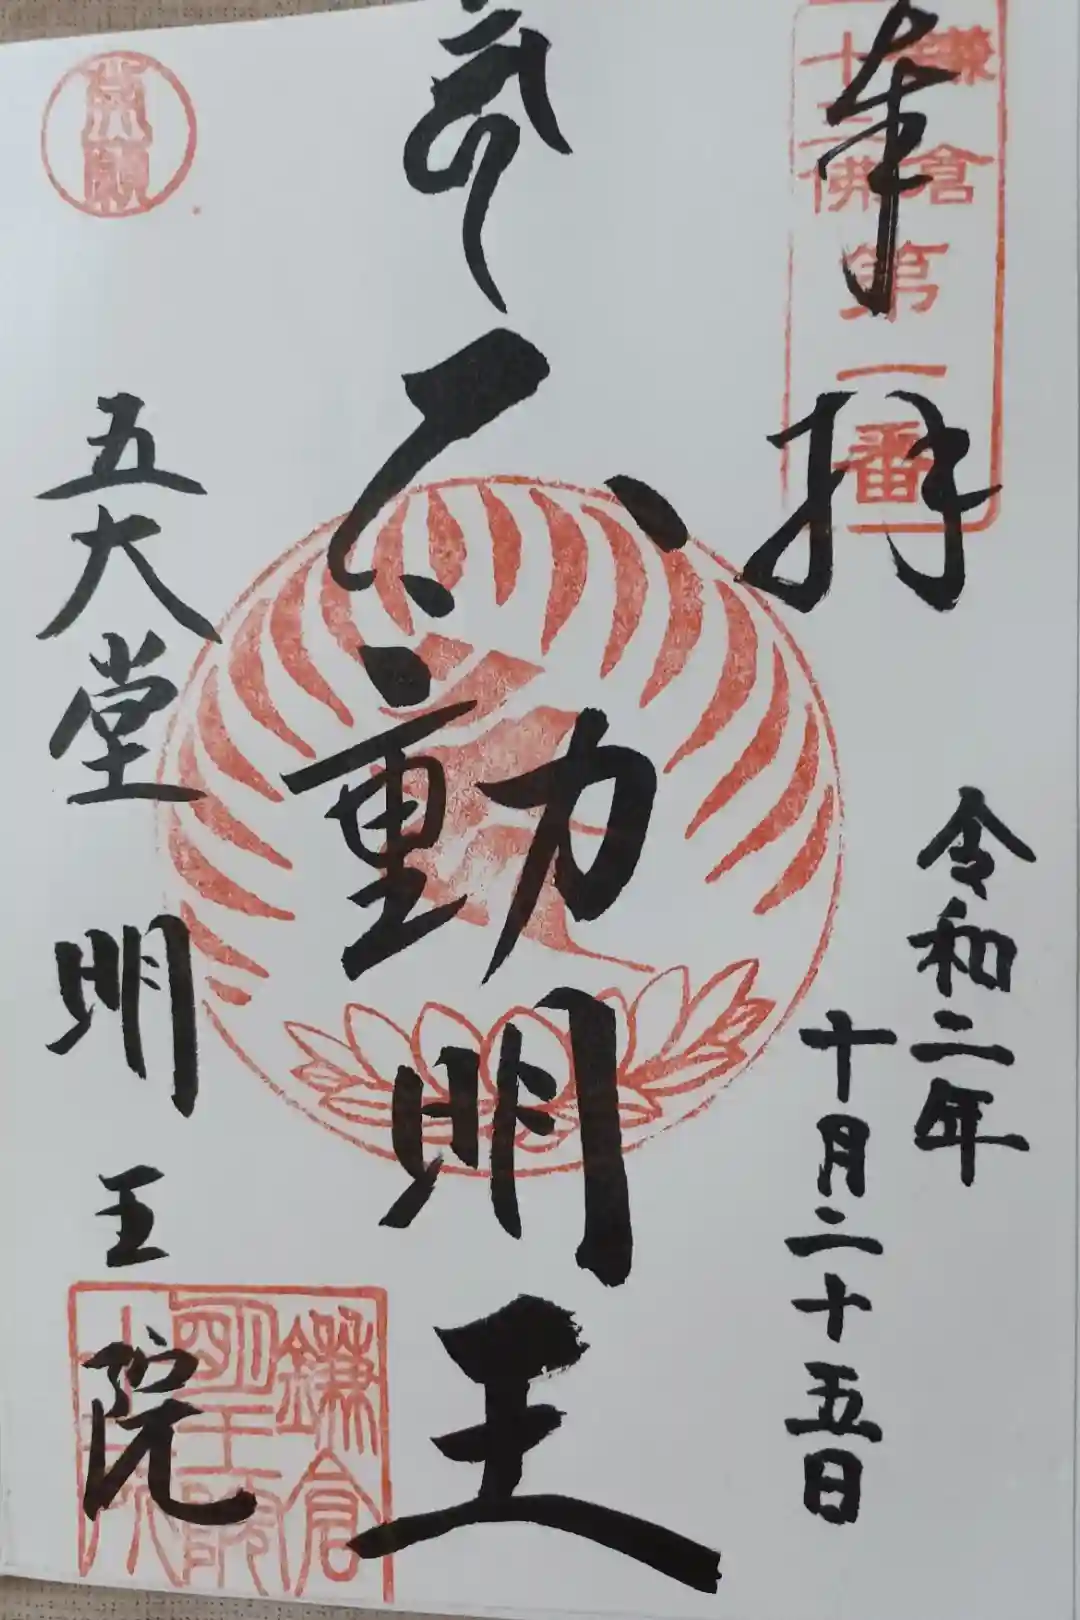 奉拝
鎌倉
十三佛
第一番
令和二年
十月二十五日
不動明王
五大堂
明王院
鎌倉
明王院